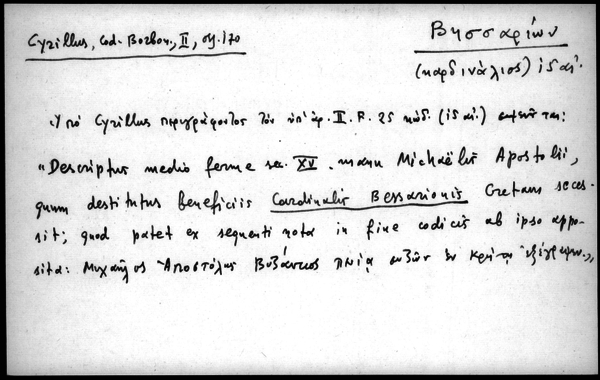 Cyrillus, Cod. Borbon., II, σ. 170
Βησσαρίων
(καρδινάλιος) ις αἰ.
Ὑπὸ Cyrillus περιγράφοντος τὸν ὑπ' ἀρ. II. F. 25 κώδ. (ις αἰ.) σημειοῦται:
"Descriptus medio ferme sec. XV. manu Michaëlis Apostolii,
quum destitutus beneficiis Cardinalis Bessarionis Cretam seces-
sit; quod patet ex sequenti nota in fine codicis ab ipso appo-
sita: Μιχαῆλος Ἀποστόλης Βυζάντιος πενίᾳ συζῶν ἐν Κρήτῃ ἐξέγραψεν.,,